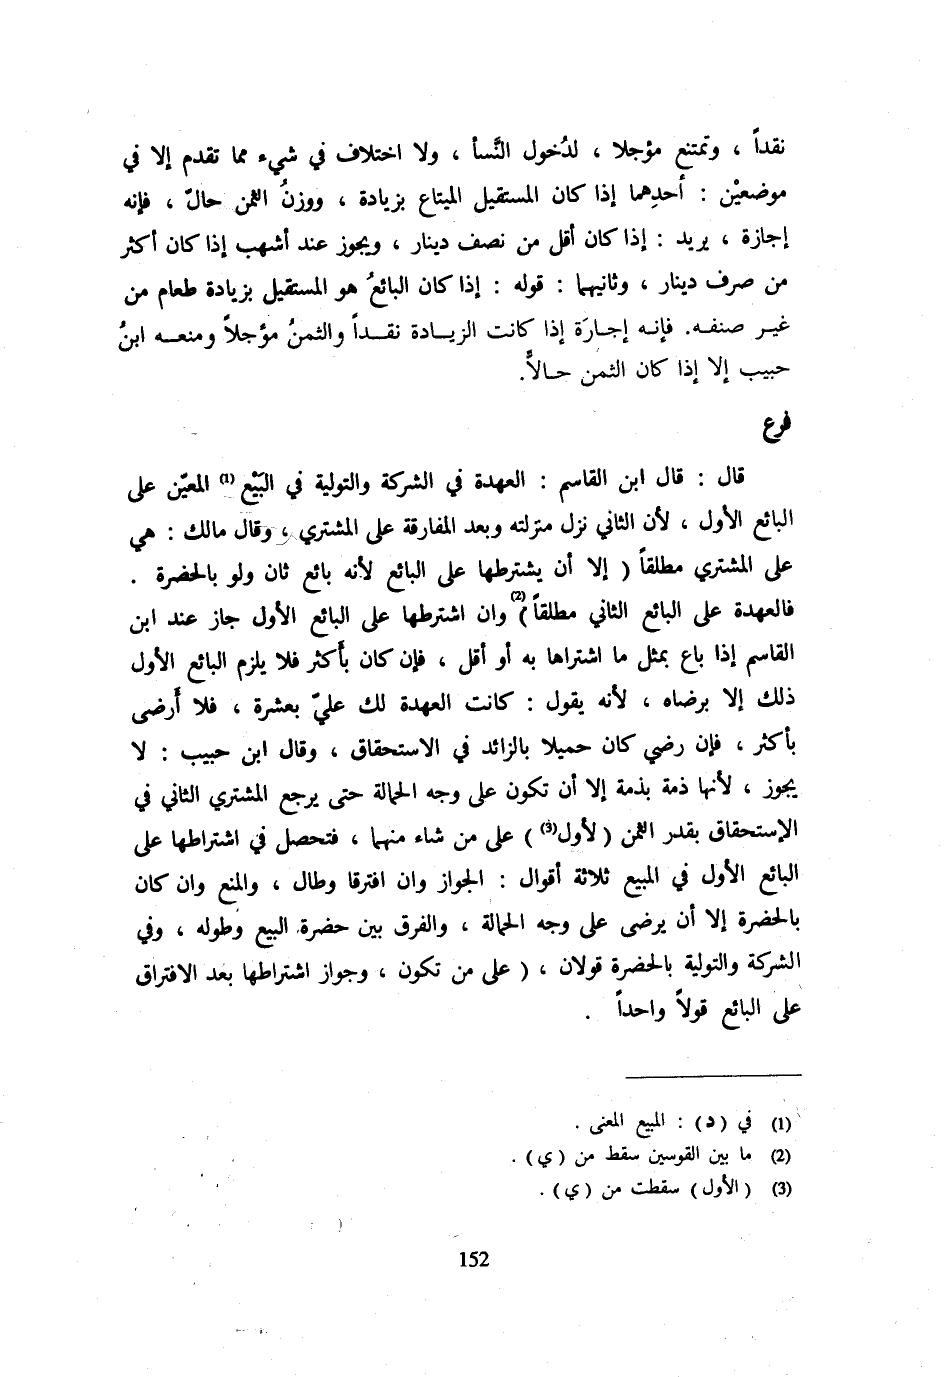 نقداً ، وتمتنع مؤجلا ، لدُخول النَّسأ ، ولا اختلاف في شيء مما تقدم إلا في
موضعيْن : أحدِهما إذا كان المستقيل المبتاع بزيادة ، ووزنُ الثمن حالّ ، فإنه
إجازة ، يريد : إذا كان أقل من نصف دينار ، ويجوز عند أشهب إذا كان أكثر
من صرف دينار ، وثانيهما : قوله : إذا كان البائعُ هو المستقيل بزيادة طعام من
غيـر صنفـه. فإنـه إجـازَة إذا كانت الزيـادة نقـداً والثمنُ مؤجلاً ومنعـه ابنُ
حبيب إلا إذا كان الثمن حـالاًّ.
فرع
قال : قال ابن القاسم : العهدة في الشركة والتولية في البَيْع (1) المعيّن على
البائع الأول ، لأن الثاني نزل منزلته وبعد المفارقة على المشتري ، وقال مالك : هي
على المشتري مطلقاً ( إلا أن يشترطها على البائع لأنه بائع ثان ولو بالحضرة .
فالعهدة على البائع الثاني مطلقاً )(2) وان اشترطها على البائع الأول جاز عند ابن
القاسم إذا باع بمثل ما اشتراها به أو أقل ، فإن كان بأكثر فلا يلزم البائع الأول
ذلك إلا برضاه ، لأنه يقول : كانت العهدة لك عليّ بعشرة ، فلا أَرضى
بأكثر ، فإن رضي كان حميلا بالزائد في الاستحقاق ، وقال ابن حبيب : لا
يجوز ، لأنها ذمة بذمة إلا أن تكون على وجه الحمالة حتى يرجع المشتري الثاني في
الإستحقاق بقدر الثمن ( لأول(3) ) على من شاء منهما ، فتحصل في اشتراطها على
البائع الأول في المبيع ثلاثة أقوال : الجواز وان افترقا وطال ، والمنع وان كان
بالحضرة إلا أن يرضى على وجه الحمالة ، والفرق بين حضرة البيع وطوله ، وفي
الشركة والتولية بالحضرة قولان ، ( على من تكون ، وجواز اشتراطها بعد الافتراق
على البائع قولاً واحداً .
(1) في ( د ) : المبيع المعنى .
(2) ما بين القوسين سقط من ( ي ) .
(3) ( الأول ) سقطت من ( ي ) .
152